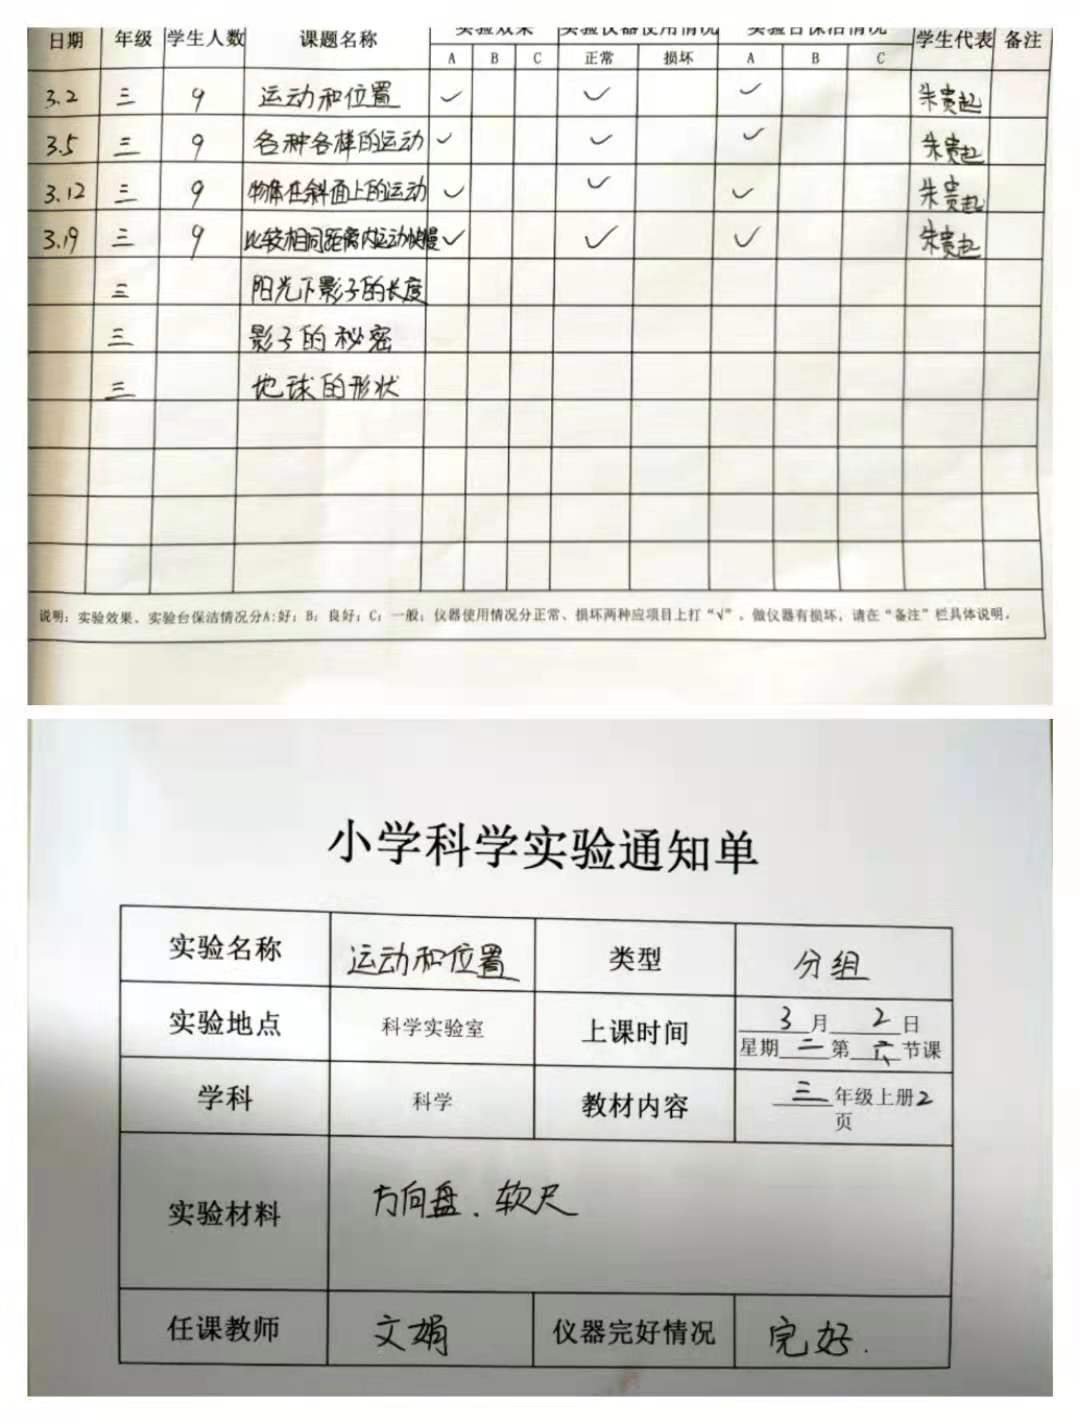 日期 年级 学生人数 课题名称 实验效果 实验仪器使用情况 实验台保洁情况 学生代表 备注
A B C 正常 损坏 A B C
3.2 三 9 运动和位置 ✓ ✓ ✓ 朱贵起
3.5 三 9 各种各样的运动 ✓ ✓ ✓ 朱贵起
3.12 三 9 物体在斜面上的运动 ✓ ✓ ✓ 朱贵起
3.19 三 9 比较相同距离内运动快慢 ✓ ✓ ✓ 朱贵起
三 阳光下影子的长度
三 影子的秘密
三 地球的形状
说明：实验效果、实验台保洁情况分A:好；B：良好；C：一般；仪器使用情况分正常、损坏两种应项目上打“√”。做仪器有损坏，请在“备注”栏具体说明。
小学科学实验通知单
实验名称 运动和位置 类型 分组
实验地点 科学实验室 上课时间 3月2日
星期二第六节课
学科 科学 教材内容 三年级上册2
页
实验材料 方向盘、软尺
任课教师 文娟 仪器完好情况 完好.